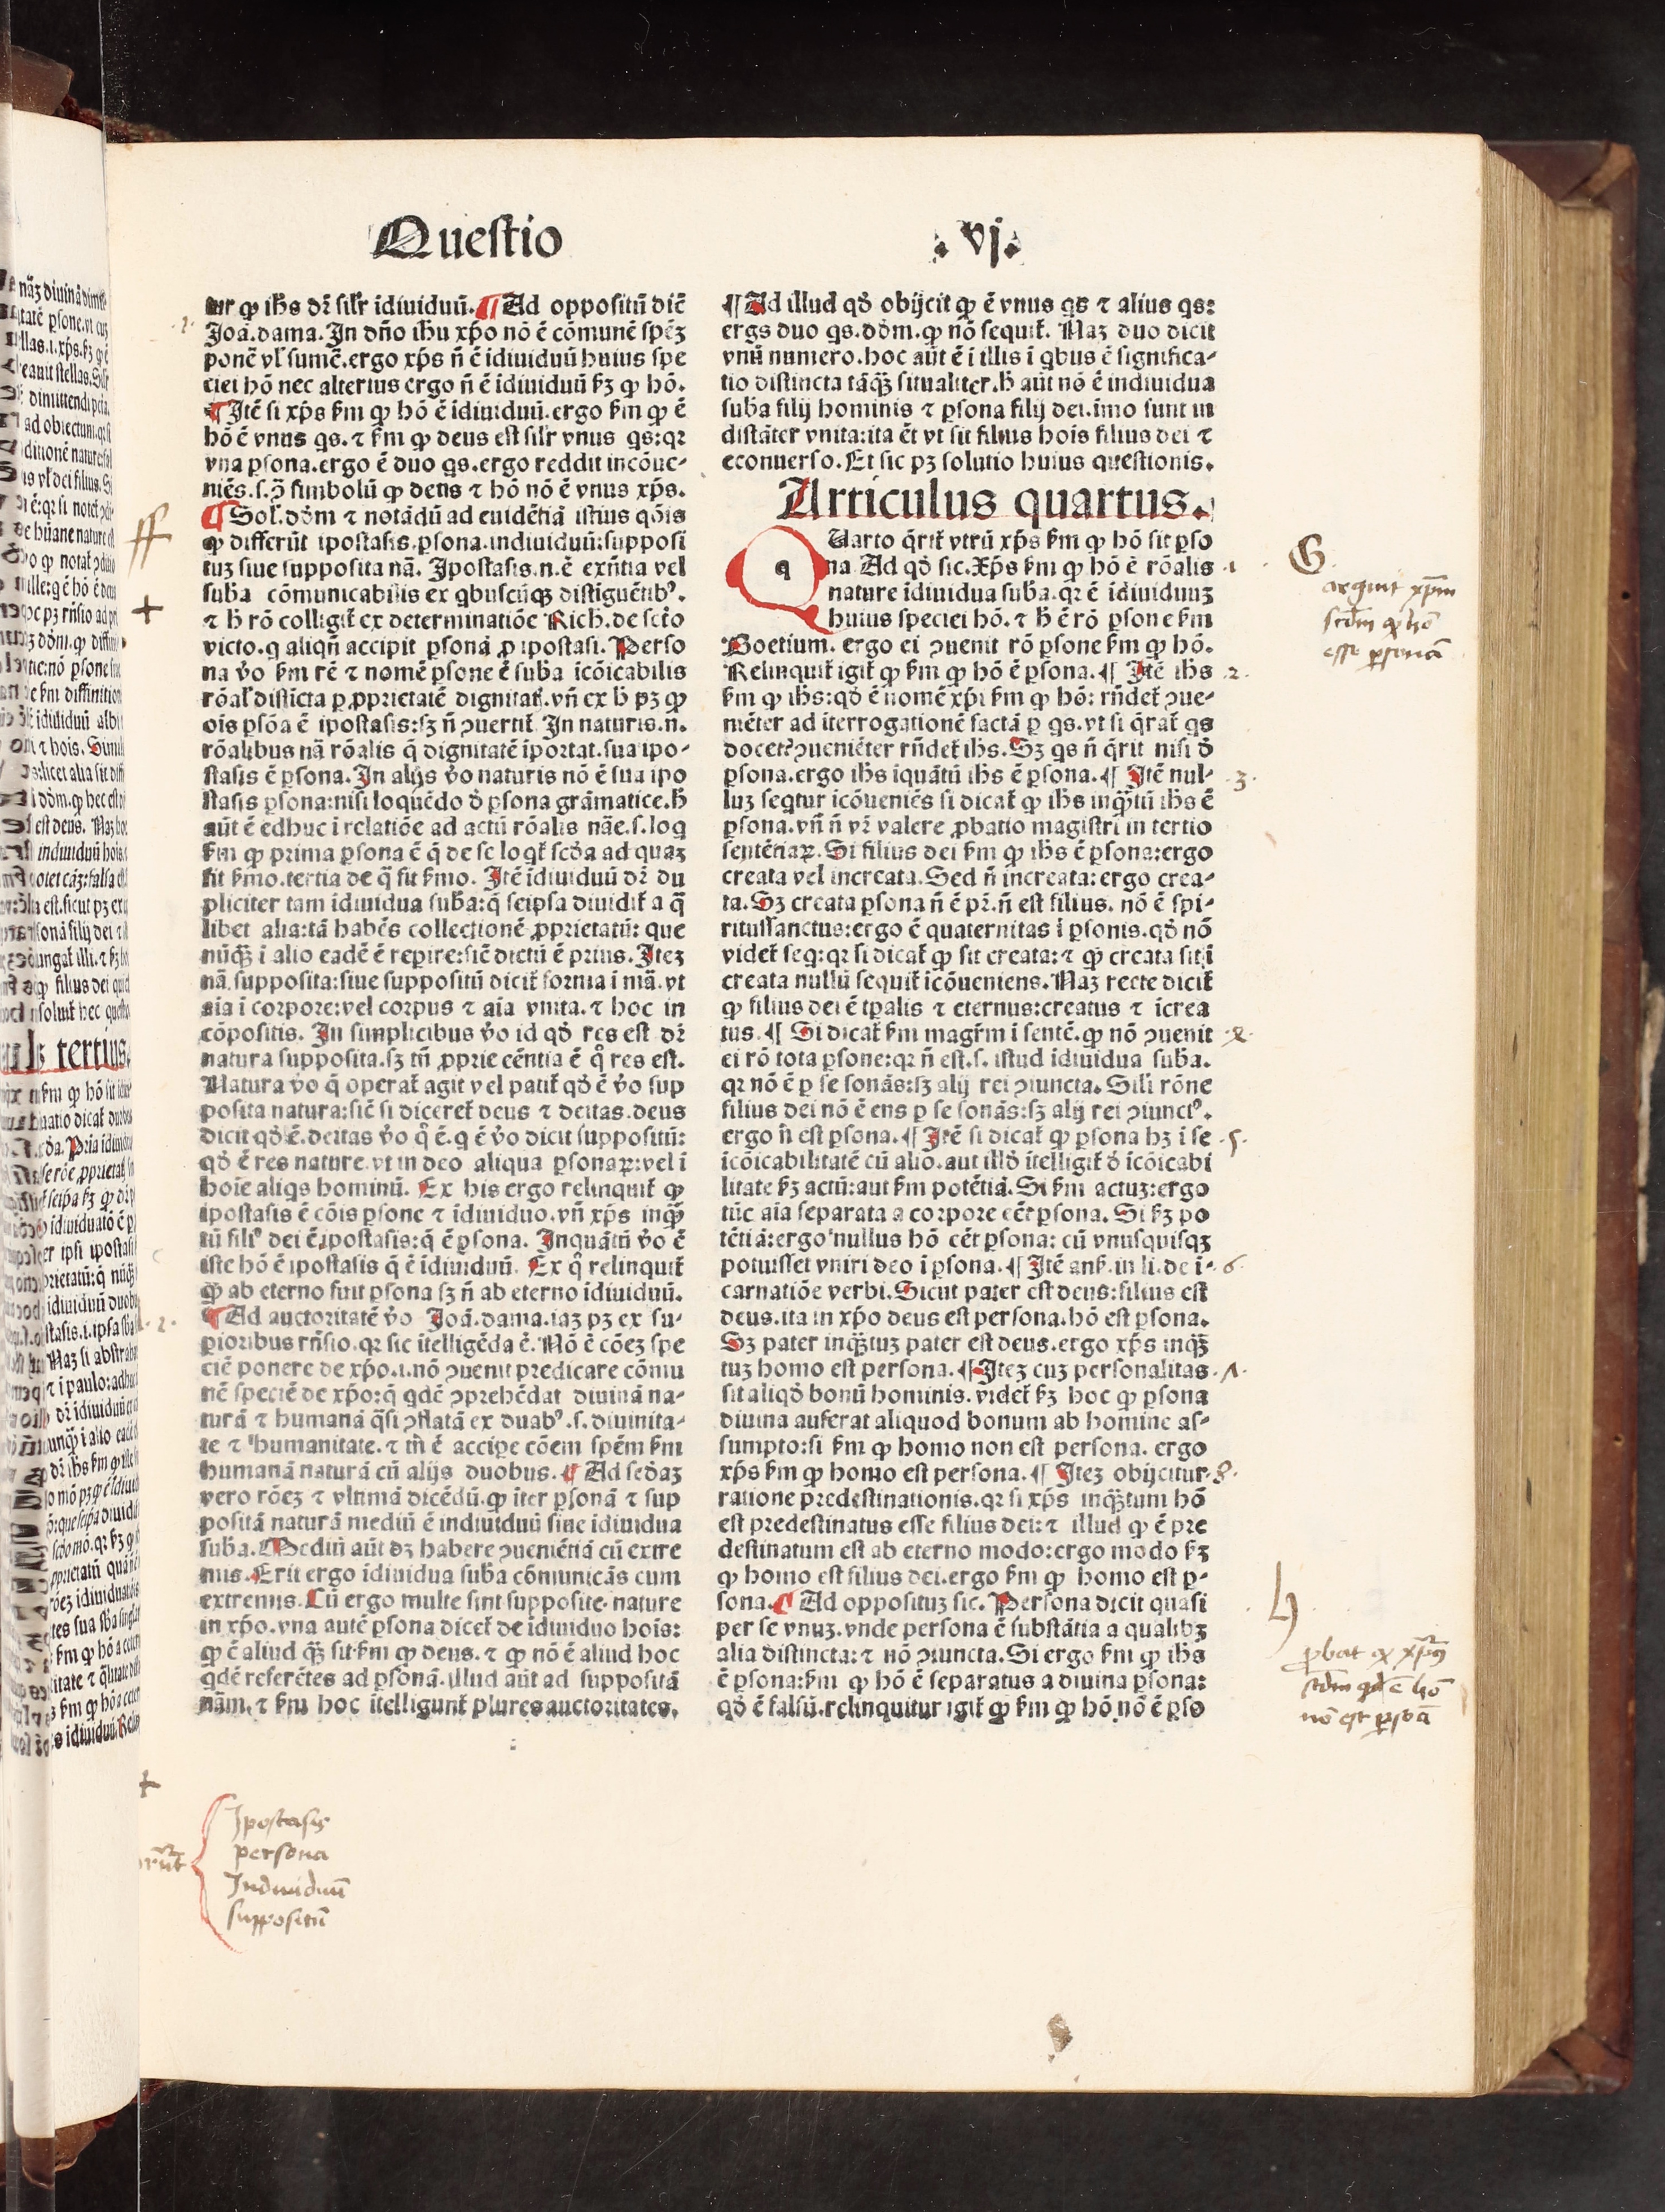 Questio
.vj.
tur ꝙ ihs dr̄ silr̄ idiuiduū. ¶ Ad oppositū diē
Joā. dama. In dn̄o ihu xp̄o nō ē cōmunē spēꝫ
ponē vl̓ sumē. ergo xp̄s n̄ ē idiuiduū huius spe
ciei hō nec alterius ergo n̄ ē idiuiduū ẜꝫ ꝙ hō.
¶ Itē si xp̄s ẜm ꝙ hō ē idiuiduū. ergo ẜm ꝙ ē
hō ē vnus qs. ⁊ ẜm ꝙ deus est silr̄ vnus qs: qꝛ
vna ꝑsona. ergo ē duo qs. ergo reddit incōue-
niēs. s. ꝯ̄ simbolū ꝙ deus ⁊ hō nō ē vnus xp̄s.
¶ Sol̓. dōm ⁊ notādū ad euidētiā istius qōis
ꝙ differūt ipostasis. ꝑsona. indiuiduū: supposi
tuꝫ siue supposita nā. Ipostasis. n. ē exn̄tia vel
suba cōmunicabilis ex qbuscūqꝫ distiguētibꝰ.
⁊ h̄ rō colligit̄ ex determinatiōe Rich. de scto
victo. q aliqn̄ accipit ꝑsonā ꝓ ipostasi. Perso
na v̄o ẜm rē ⁊ nomē ꝑsone ē suba icōicabilis
rōal̓ distīcta ꝑ ꝓprietatē dignitat̄. vn̄ ex h̄ pꝫ ꝙ
ois ꝑsōa ē ipostasis: sꝫ n̄ ꝯuertit̄. In naturis. n.
rōalibus nā rōalis q̄ dignitatē iportat. sua ipo-
stasis ē ꝑsona. In alijs v̄o naturis nō ē sua ipo
stasis ꝑsona: nisi loquēdo d̄ ꝑsona grāmatice. h̄
aūt ē edhuc i relatiōe ad actū rōalis nāe. s. loq
ẜm ꝙ prima ꝑsona ē q̄ de se loqt̄ scda ad quaꝫ
fit ẜmo. tertia de q̄ fit ẜmo. Itē idiuiduū dr̄ du
pliciter tam idiuidua suba: q̄ seipsa diuidit̄ a q̄
libet alia: tā habēs collectionē ꝓprietatū: que
nūqꝫ i alio eadē ē repire: sic̄ dictū ē prius. Iteꝫ
nā. supposita: siue suppositū dicit̄ forma i mā. vt
aia i corpore: vel corpus ⁊ aia vnita. ⁊ hoc in
cōpositis. In simplicibus v̄o id qd̄ res est dr̄
natura supposita. sꝫ tn̄ ꝓprie cēntia ē q̊ res est.
Natura v̄o q̄ operat̄ agit vel patit̄ qd̄ ē v̄o sup
posita natura: sic̄ si diceret̄ deus ⁊ deitas. deus
dicit qd̄ ē. deitas v̄o q̊ ē. q ē v̄o dicit suppositū:
qd̄ ē res nature. vt in deo aliqua ꝑsonaꝝ: vel i
hoie aliqs hominū. Ex his ergo relinquit̄ ꝙ
ipostasis ē cōis ꝑsone ⁊ idiuiduo. vn̄ xp̄s inqꝫ̄
tū filiꝰ dei ē ipostasis: q̄ ē ꝑsona. Inquātū v̄o ē
iste hō ē ipostasis q̄ ē idiuiduū. Ex q̊ relinquit̄
ꝙ ab eterno fuit ꝑsona sꝫ n̄ ab eterno idiuiduū.
¶ Ad auctoritatē v̄o Joā. dama. iaꝫ pꝫ ex su-
pioribus rn̄sio. qꝛ sic itelligēda ē. Nō ē cōeꝫ spe
ciē ponere de xp̄o. i. nō ꝯuenit predicare cōmu
nē speciē de xp̄o: q̄ qdē ꝯprehēdat diuinā na-
turā ⁊ humanā q̄si ꝯflatā ex duabꝰ. s. diuinita-
te ⁊ humanitate. ⁊ tn̄ ē accipe cōem spēm ẜm
humanā naturā cū alijs duobus. ¶ Ad scdaꝫ
vero rōeꝫ ⁊ vltimā dicēdū. ꝙ iter ꝑsonā ⁊ sup
positā naturā mediū ē indiuiduū siue idiuidua
suba. Mediū aūt dꝫ habere ꝯueniētiā cū extre
mis. Erit ergo idiuidua suba cōmunicās cum
extremis. Cū ergo multe sint supposite nature
in xp̄o. vna autē ꝑsona dicet̄ de idiuiduo hois:
ꝙ ē aliud qꝫ̄ sit ẜm ꝙ deus. ⁊ ꝙ nō ē aliud hoc
qdē referētes ad ꝑsonā. illud aūt ad suppositā
nām. ⁊ ẜm hoc itelligunt̄ plures auctoritates.
¶ Ad illud qd̄ obijcit̄ ꝙ ē vnus qs ⁊ alius qs:
ergo duo qs. dōm. ꝙ nō sequit̄. Naꝫ duo dicit
vnū numero. hoc aūt ē i illis i qbus ē significa-
tio distincta tāqꝫ̄ situaliter. h̄ aūt nō ē indiuidua
suba filij hominis ⁊ ꝑsona filij dei. imo sunt in
distāter vnita: ita ēt vt sit filius hois filius dei ⁊
econuerso. Et sic pꝫ solutio huius questionis.
Articulus quartus.
QUarto q̄rit̄ vtrū xp̄s ẜm ꝙ hō sit ꝑso
na Ad qd̄ sic. Xp̄s ẜm ꝙ hō ē rōalis
nature idiuidua suba. qꝛ ē idiuiduuꝫ
huius speciei hō. ⁊ h̄ ē rō ꝑsone ẜm
Boetium. ergo ei ꝯuenit rō ꝑsone ẜm ꝙ hō.
Relinquit̄ igit̄ ꝙ ẜm ꝙ hō ē ꝑsona. ¶ Itē ihs
ẜm ꝙ ihs: qd̄ ē nomē xp̄i ẜm ꝙ hō: rn̄det̄ ꝯue-
niēter ad iterrogationē factā ꝑ qs. vt si q̄rat̄ qs
docet? ꝯueniēter rn̄det̄ ihs. Sꝫ qs n̄ q̄rit nisi d̄
ꝑsona. ergo ihs iquātū ihs ē ꝑsona. ¶ Itē nul-
luꝫ seqtur icōueniēs si dicat̄ ꝙ ihs inqꝫ̄tū ihs ē
ꝑsona. vn̄ n̄ vr̄ valere ꝓbatio magistri in tertio
sentētiaꝝ. Si filius dei ẜm ꝙ ihs ē ꝑsona: ergo
creata vel increata. Sed n̄ increata: ergo crea-
ta. Sꝫ creata ꝑsona n̄ ē pr̄. n̄ est filius. nō ē spi-
ritussanctus: ergo ē quaternitas i ꝑsonis. qd̄ nō
videt̄ seq: qꝛ si dicat̄ ꝙ sit creata: ⁊ ꝙ creata sit i
creata nullū sequit̄ icōueniens. Naꝫ recte dicit̄
ꝙ filius dei ē tꝑalis ⁊ eternus: creatus ⁊ icrea
tus. ¶ Si dicat̄ ẜm magr̄m i sentē. ꝙ nō ꝯuenit
ei rō tota ꝑsone: qꝛ n̄ est. s. istud idiuidua suba.
qꝛ nō ē ꝑ se sonās: sꝫ alij rei ꝯiuncta. Sili rōne
filius dei nō ē ens ꝑ se sonās: sꝫ alij rei ꝯiunctꝰ.
ergo n̄ est ꝑsona. ¶ Itē si dicat̄ ꝙ ꝑsona hꝫ i se
icōicabilitatē cū alio. aut illd̄ itelligit̄ d̄ icōicabi
litate ẜꝫ actū: aut ẜm potētiā. Si ẜm actuꝫ: ergo
tūc aia separata a corpore eēt ꝑsona. Si ẜꝫ po
tētiā: ergo nullus hō eēt ꝑsona: cū vnusquisqꝫ
potuisset vniri deo i ꝑsona. ¶ Itē anẜ. in li. de i-
carnatiōe verbi. Sicut pater est deus: filius est
deus. ita in xp̄o deus est persona. hō est ꝑsona.
Sꝫ pater inqꝫ̄tuꝫ pater est deus. ergo xp̄s inqꝫ̄
tuꝫ homo est persona. ¶ Iteꝫ cuꝫ personalitas
sit aliqd̄ bonū hominis. videt̄ ẜꝫ hoc ꝙ ꝑsona
diuina auferat aliquod bonum ab homine as-
sumpto: si ẜm ꝙ homo non est persona. ergo
xp̄s ẜm ꝙ homo est persona. ¶ Iteꝫ obijcitur
ratione predestinationis. qꝛ si xp̄s inqꝫ̄tum hō
est predestinatus esse filius dei: ⁊ illud ꝙ ē pre
destinatum est ab eterno modo: ergo modo ẜꝫ
ꝙ homo est filius dei. ergo ẜm ꝙ homo est ꝑ-
sona. ¶ Ad opposituꝫ sic. Persona dicit quasi
per se vnuꝫ. vnde persona ē substātia a qualibꝫ
alia distincta: ⁊ nō ꝯiuncta. Si ergo ẜm ꝙ ihs
ē ꝑsona: ẜm ꝙ hō ē separatus a diuina ꝑsona:
qd̄ ē falsū. relinquitur igit̄ ꝙ ẜm ꝙ hō nō ē ꝑso
G
arguit xp̄m
scdm ꝙ hō
esse ꝑsonā
1
2
3
4
5
6
7
8
h
ꝓbat ꝙ xp̄us
scdm qd ē hō
nō est ꝑsōa
Ipostasis
persona
Indiuiduū
suppositū